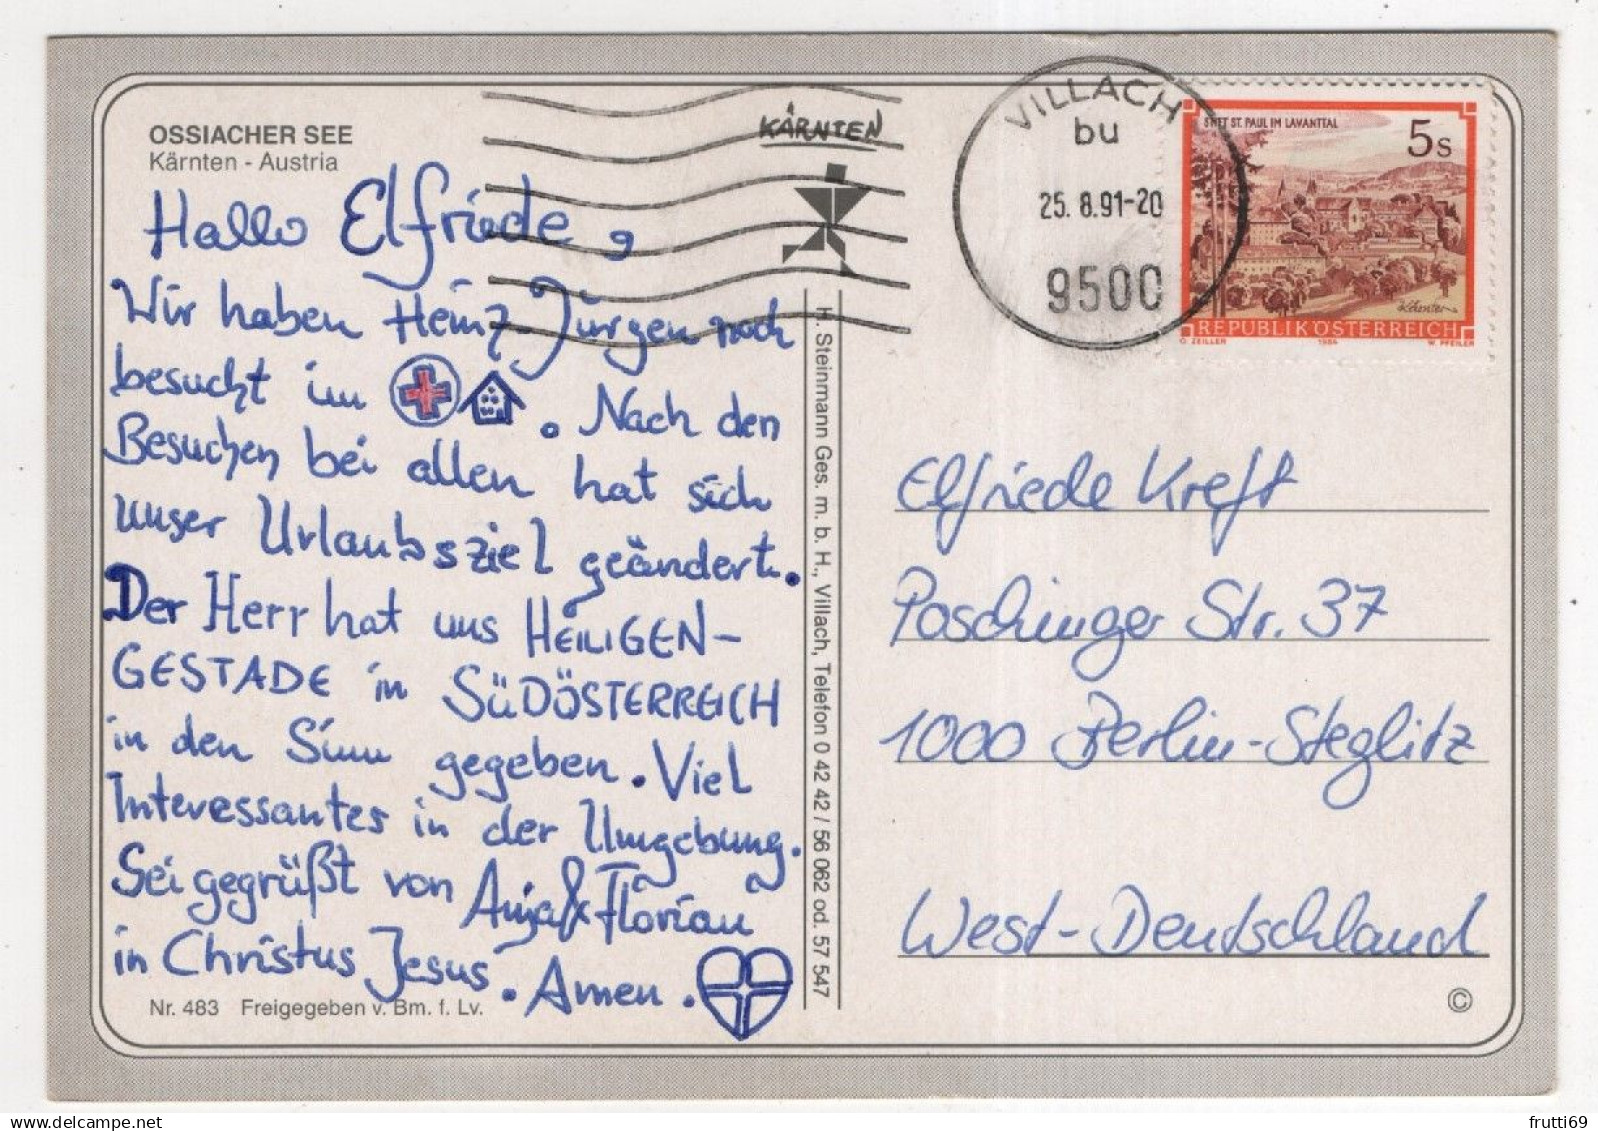 OSSIACHER SEE
Kärnten - Austria
Hallo Elfriede,
Wir haben Heinz-Jürgen noch
besucht im . Nach den
Besuchen bei allen hat sich
unser Urlaubsziel geändert.
Der Herr hat uns HEILIGEN-
GESTADE in SÜDÖSTERREICH
in den Sinn gegeben. Viel
Interessantes in der Umgebung.
Sei gegrüßt von Anja & Florian
in Christus Jesus. Amen.
Nr. 483 Freigegeben v. Bm. f. Lv.
H. Steinmann Ges. m. b. H., Villach, Telefon 0 42 42 / 56 062 od. 57 547
KÄRNTEN
VILLACH
bu
25. 8. 91-20
9500
STIFT ST. PAUL IM LAVANTTAL
5 S
Kärnten
REPUBLIK ÖSTERREICH
O. ZEILLER 1984 W. PFEILER
Elfriede Kreft
Poschinger Str. 37
1000 Berlin-Steglitz
West-Deutschland
©
frutti69